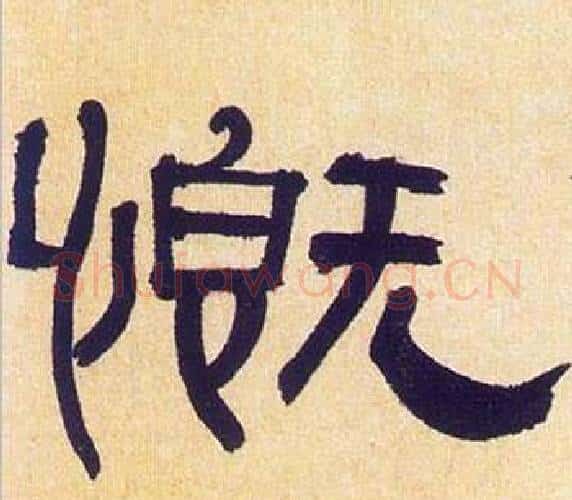 慨
Shufawang.CN